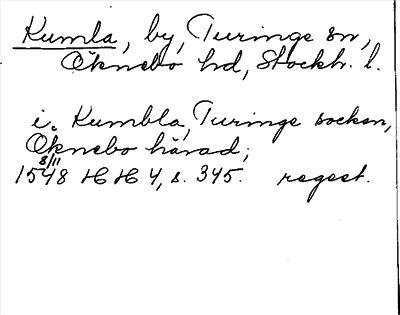 Kumla, by, Turinge sn,
Öknebo hd, Stockh. l.
i. Kumbla, Turinge socken,
Öknebo härad;
8/11
1548 HH 4, s. 345. regest.